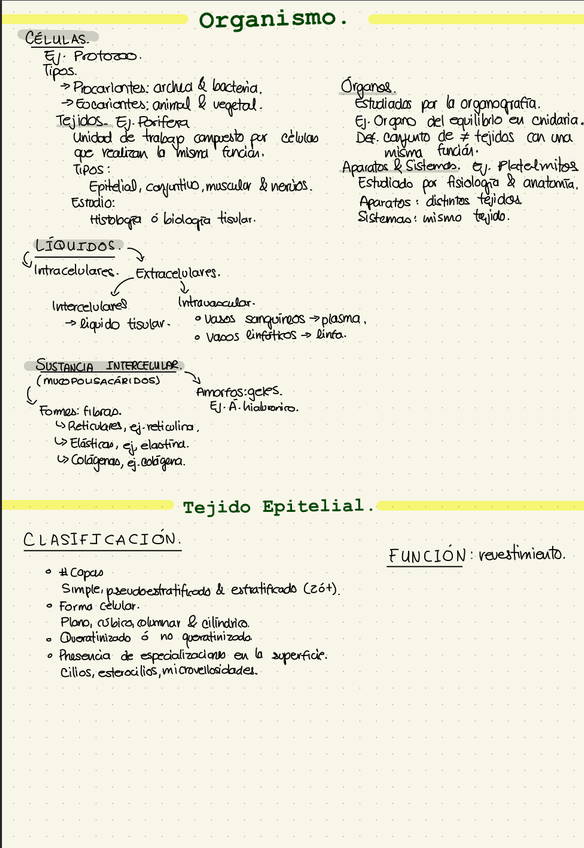 Organismo.
CÉLULAS.
Ej. Protozoo.
Tipos.
→ Procariontes: archea & bacteria.
→ Eocariontes; animal & vegetal.
Tejidos. Ej. Porifera
Unidad de trabajo compuesto por células
que realizan la misma función.
Tipos:
Epitelial, conjuntivo, muscular & nervios.
Estudio:
Histología ó biología tisular.
Órganos.
Estudiados por la organografía.
Ej. Organo del equilibrio en cnidaria.
Def. conjunto de ≠ tejidos con una
misma función.
Aparatos & Sistemas. ej. Platelmitos
Estudiado por fisiología & anatomía.
Aparatos: distintos tejidos
Sistemas: mismo tejido.
LÍQUIDOS.
Intracelulares. Extracelulares.
Intercelulares
→ liquido tisular.
Intravascular.
° Vasos sanguíneos → plasma.
° Vasos linfáticos → linfa.
SUSTANCIA INTERCELULAR.
(MUCOPOLISACÁRIDOS)
Amorfos: geles.
Ej. A. hialuronico.
Formes: fibras.
↳ Reticulares, ej. reticulina.
↳ Elásticas, ej. elastina.
↳ Colágenas, ej. colágena.
Tejido Epitelial.
CLASIFICACIÓN.
° # Capas
Simple, pseudoestratificado & estratificado (2ó+).
° Forma celular.
Plano, cúbico, columnar & cilíndrico.
° Queratinizado ó no queratinizado
° Presencia de especializaciones en la superficie.
Cilios, esterocilios, microvellosidades.
FUNCIÓN: revestimiento.